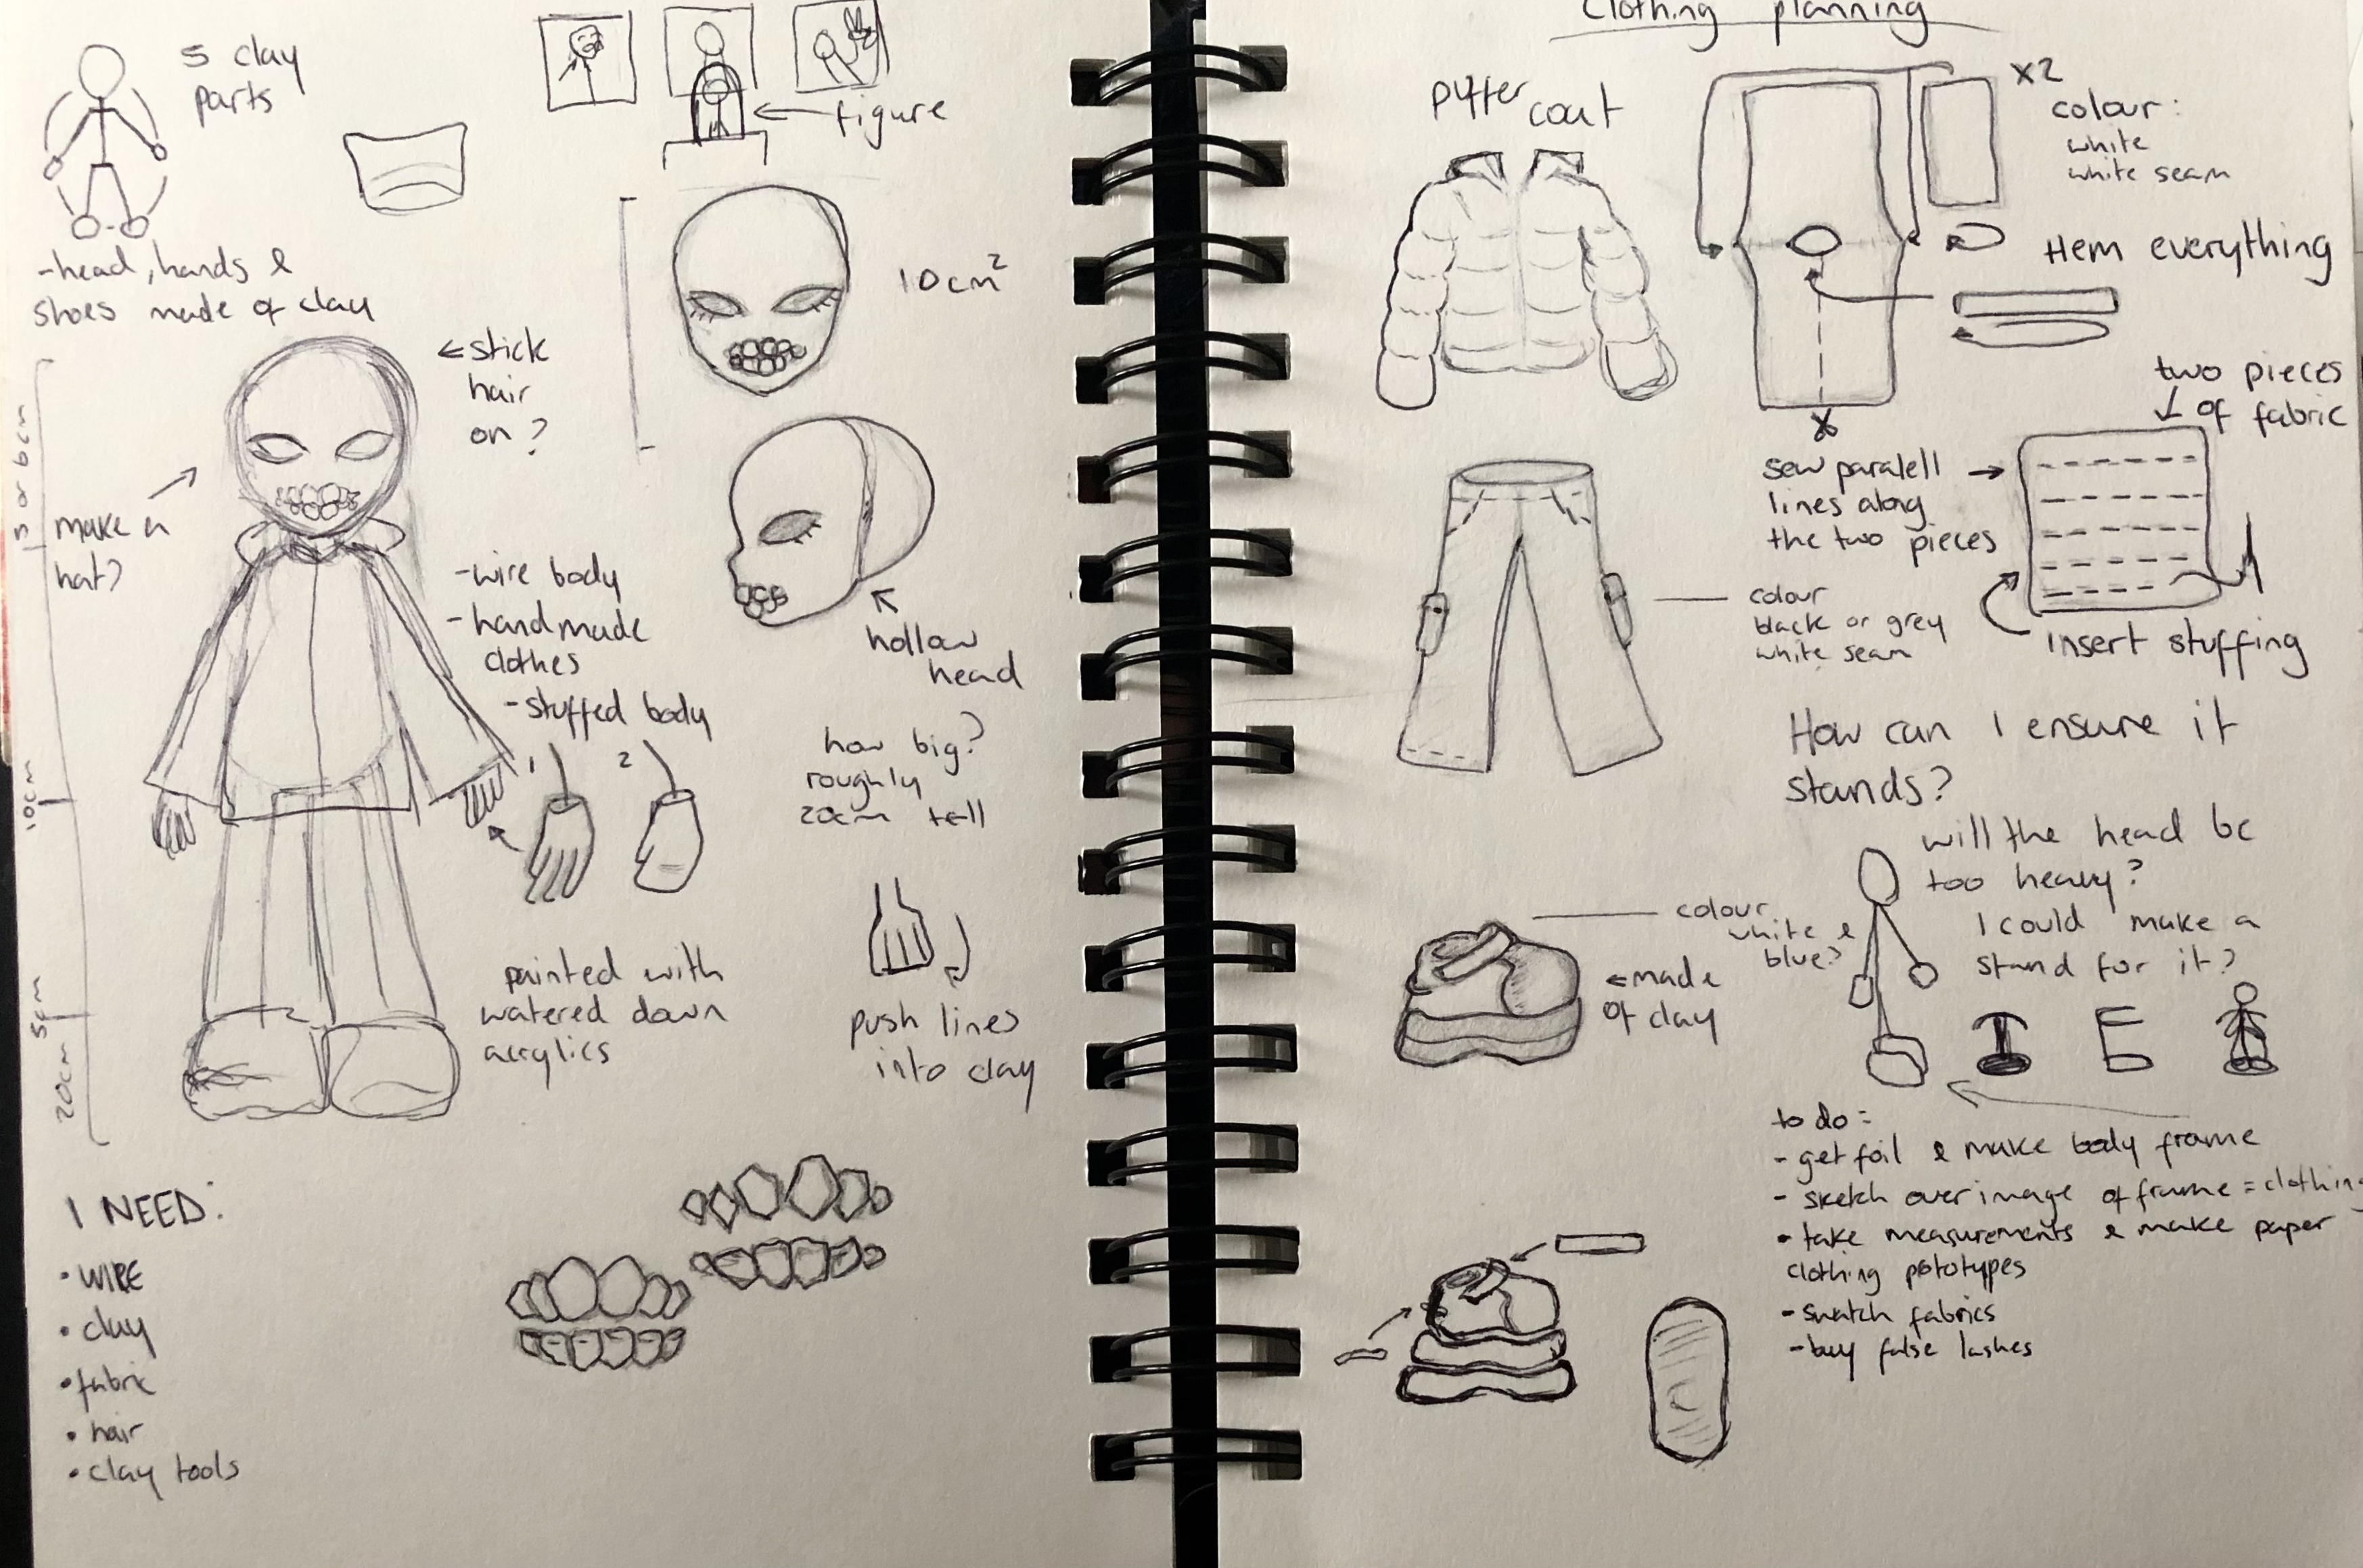 5 clay
parts
figure
-head, hands &
shoes made of clay
10cm²
←stick
hair
on?
make a
hat?
5 or 6cm
10cm
5cm
20cm
-wire body
-handmade
clothes
-stuffed body
hollow
head
how big?
roughly
20cm tall
1
2
painted with
watered down
acrylics
push lines
into clay
I NEED:
• WIRE
• clay
• fabric
• hair
• clay tools
Clothing planning
puffer coat
x2
colour:
white
white seam
Hem everything
two pieces
of fabric
sew paralell
lines along
the two pieces
insert stuffing
colour
black or grey
white seam
How can I ensure it
stands?
will the head be
too heavy?
I could make a
stand for it?
colour
white &
blue?
←made
of clay
to do:
- get foil & make body frame
- sketch over image of frame = clothing
• take measurements & make paper
clothing pototypes
- swatch fabrics
- buy false lashes